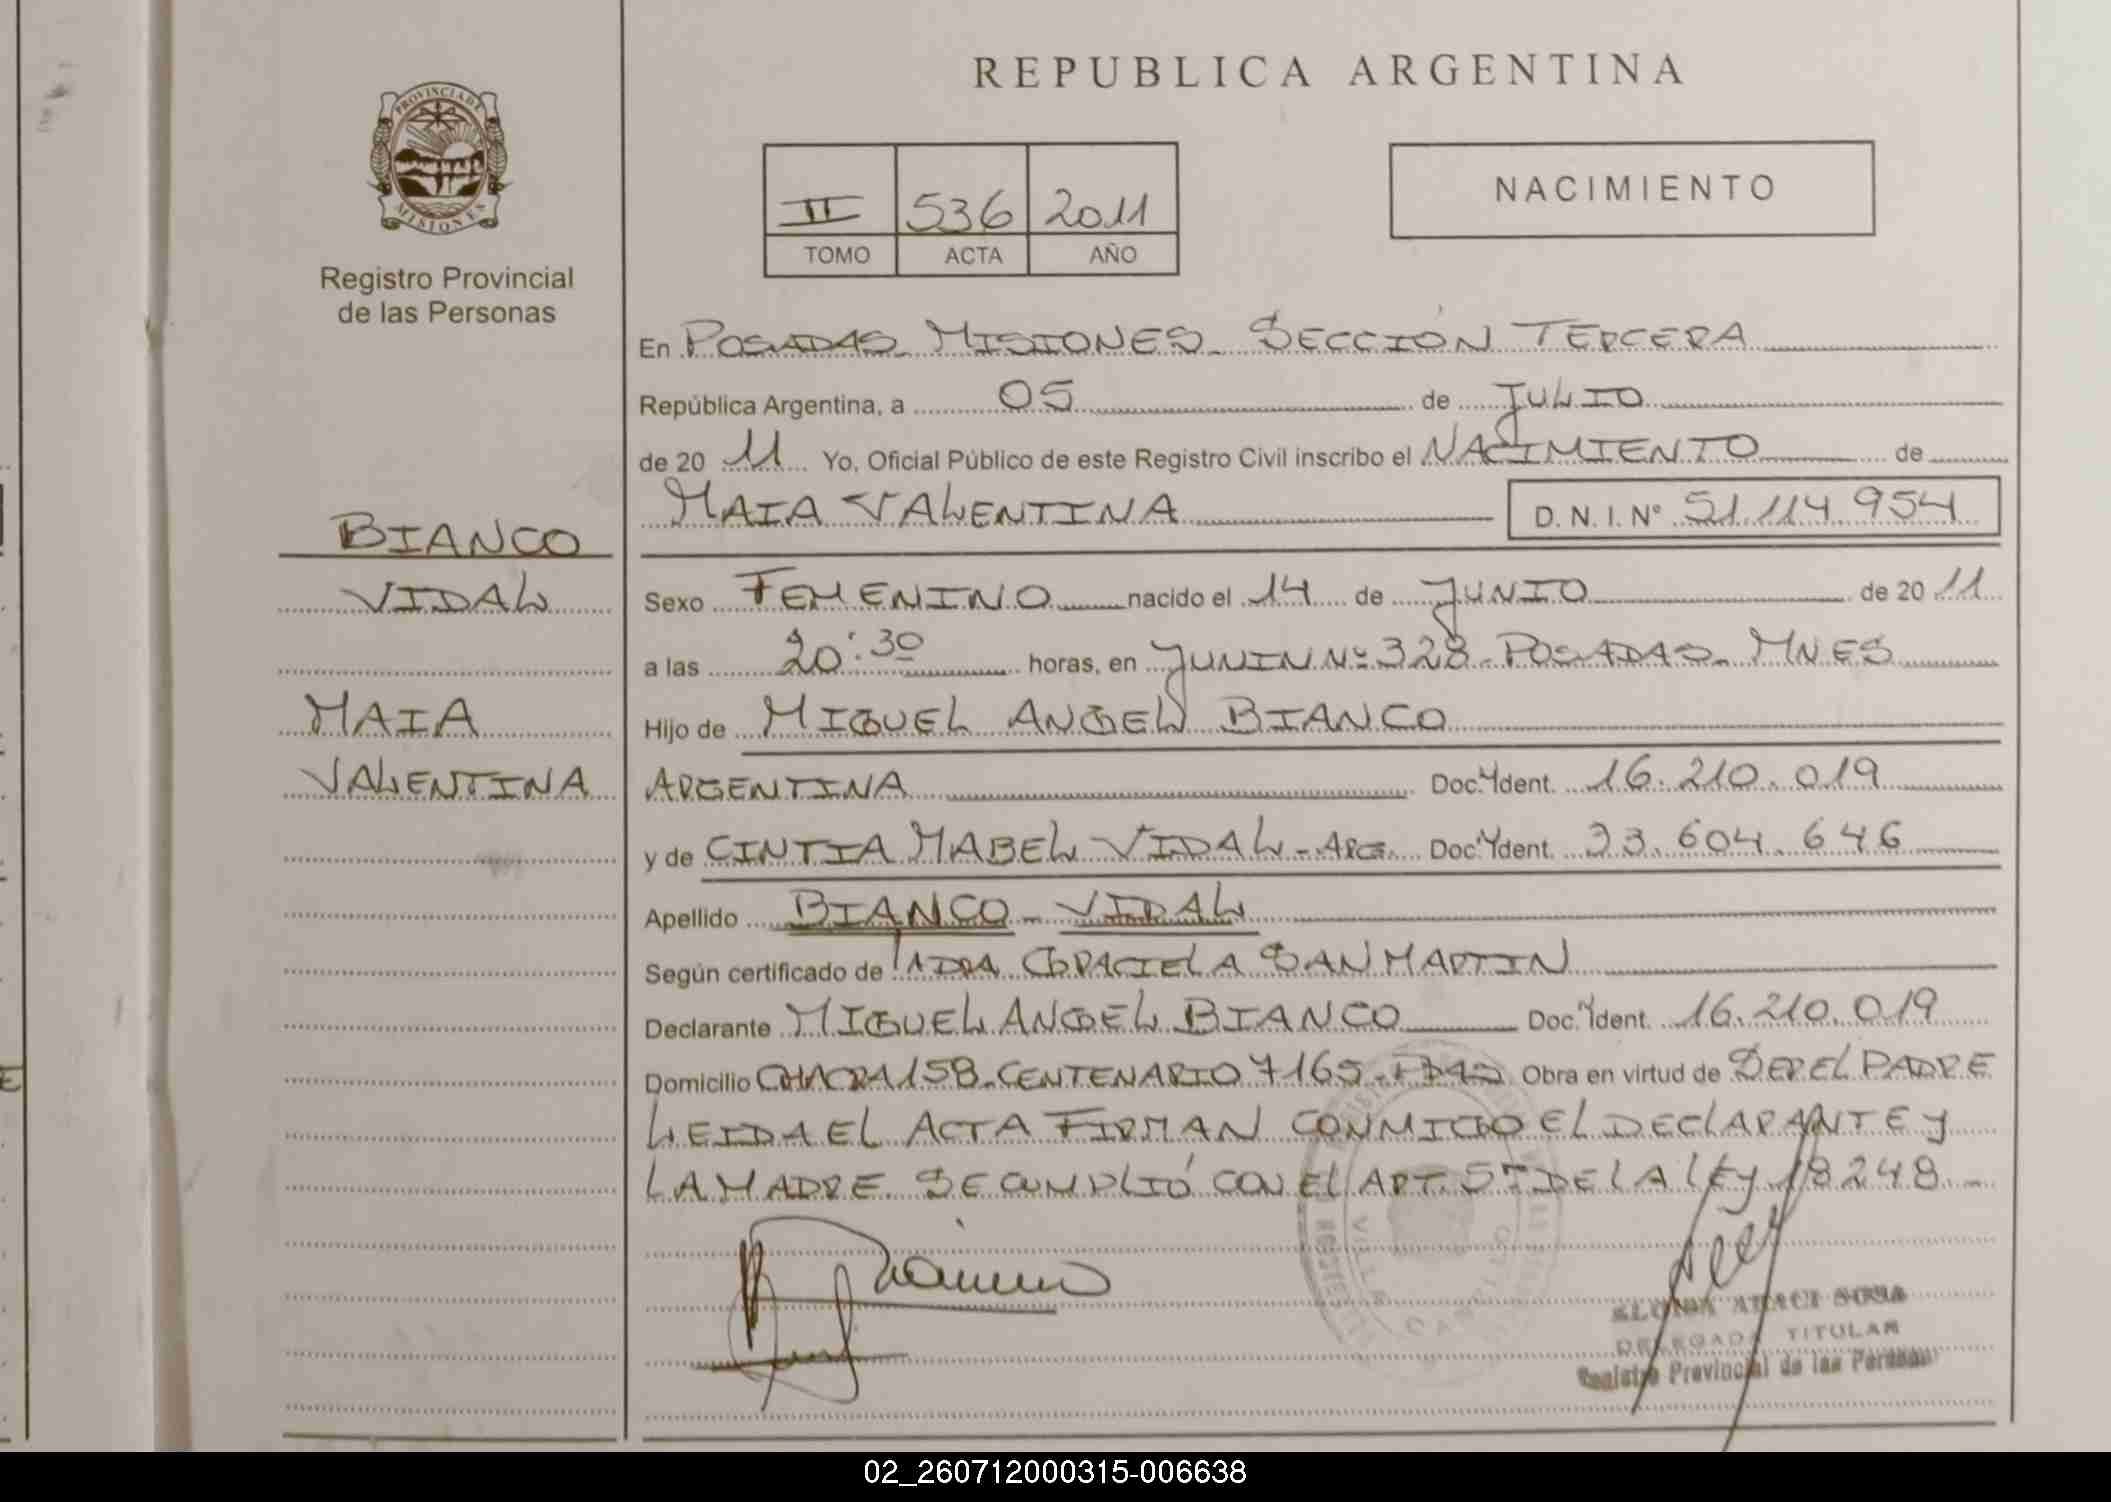 REPUBLICA ARGENTINA
PROVINCIA DE
MISIONES
Registro Provincial
de las Personas
II 536 2011
TOMO ACTA AÑO
NACIMIENTO
En POSADAS MISIONES. SECCIÓN TERCERA
República Argentina, a 05 de JULIO
de 20 11 Yo, Oficial Público de este Registro Civil inscribo el NACIMIENTO de
MAIA VALENTINA D.N.I. Nº 51.114.954
BIANCO
VIDAL
MAIA
VALENTINA
Sexo FEMENINO nacido el 14 de JUNIO de 20 11
a las 20:30 horas, en JUNIN Nº 328. POSADAS. MNES
Hijo de MIGUEL ANGEL BIANCO
ARGENTINA Doc. Ident. 16.210.019
y de CINTIA MABEL VIDAL - ARG. Doc. Ident. 33.604.646
Apellido BIANCO - VIDAL
Según certificado de GRACIELA SAN MARTIN
Declarante MIGUEL ANGEL BIANCO Doc. Ident. 16.210.019
Domicilio CHACRA 158. CENTENARIO 7165. PDAS Obra en virtud de SER EL PADRE
LEIDA EL ACTA FIRMAN CONMIGO EL DECLARANTE y
LA MADRE. SE CUMPLIÓ CON EL ART. 5º DE LA LEY 18248
SOSA
DELEGADA TITULAR
Registro Provincial de las Personas
02_260712000315-006638